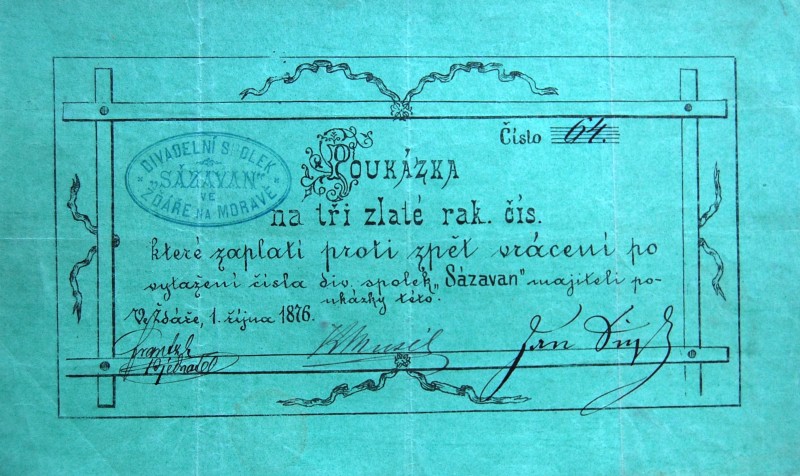 Číslo 64.
DIVADELNÍ SPOLEK
„SÁZAVAN“
VE
ŽDÁŘE NA MORAVĚ
POUKÁZKA
na tři zlaté rak. čís.
které zaplatí proti zpět vrácení po
vytažení čísla div. spolek „Sázavan“ majiteli po-
ukázky této.
Ve Ždáře, 1. října 1876.
Jan